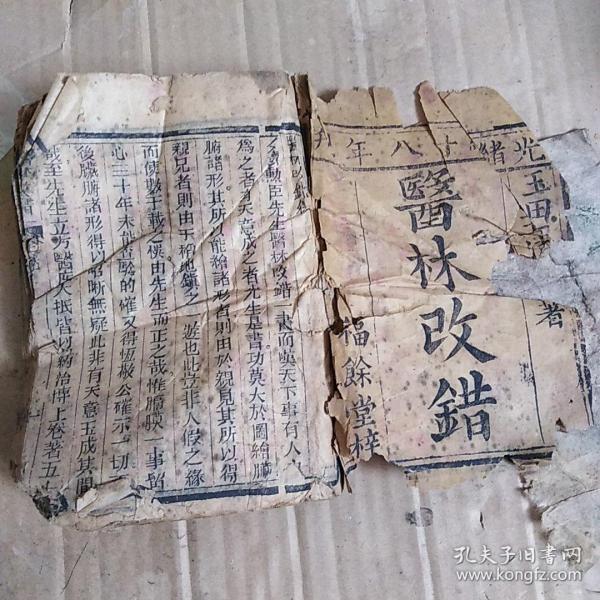 光緒十八年
玉田
著
醫林改錯
福餘堂梓
勳臣先生醫林改錯一書而嘆天下事有人
爲之者有天意成之者先生是書功莫大於圖繪臟
腑諸形其所以能繪諸形者則由於親見其所以得
親見者則由于稻地鎮之一遊也此豈非人假之緣
而使數千載之悞由先生而正之哉惟膈膜一事留
心三十年未能查驗的確又得恆敬公確示一切
後臟腑諸形得以昭晰無疑此非有天意玉成其間
哉至先生立方醫病大抵皆以約治博上卷著五十
孔夫子旧书网
www.kongfz.com